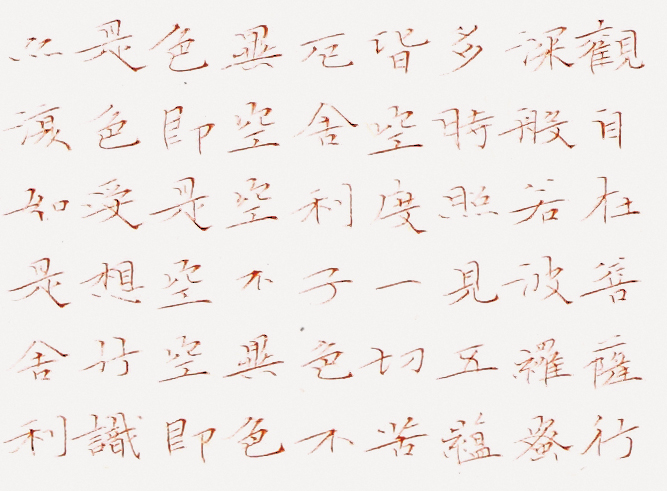 觀自在菩薩行
深般若波羅蜜
多時照見五蘊
皆空度一切苦
厄舍利子色不
異空空不異色
色即是空空即
是色受想行識
亦復如是舍利